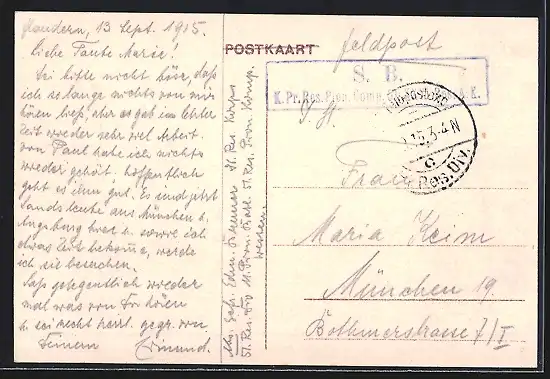 Flandern, 13 Sept. 1915.
Liebe Tante Marie!
Sei bitte nicht böse, daß
ich so lange nichts von mir
hören ließ, aber es gab in letzter
Zeit wieder sehr viel Arbeit.
von Paul habe ich nichts
wieder gehört. hoffentlich
geht es ihm gut. Es sind jetzt
Landsleute aus München u.
Augsburg hier u. sowie ich
etwas Zeit bekomme, werde
ich sie besuchen.
Laß gelegentlich wieder
mal was von Dir hören
u. sei recht herzl. gegr. von
Deinem Edmund.
Res. Korps
Res. Pion. Komp.
POSTKAART
Feldpost
S. B.
K. Pr. Res. Pion. Comp.
Res. Div.
Frau
Maria Keim
München 19.
Bothmerstrasse 7/I